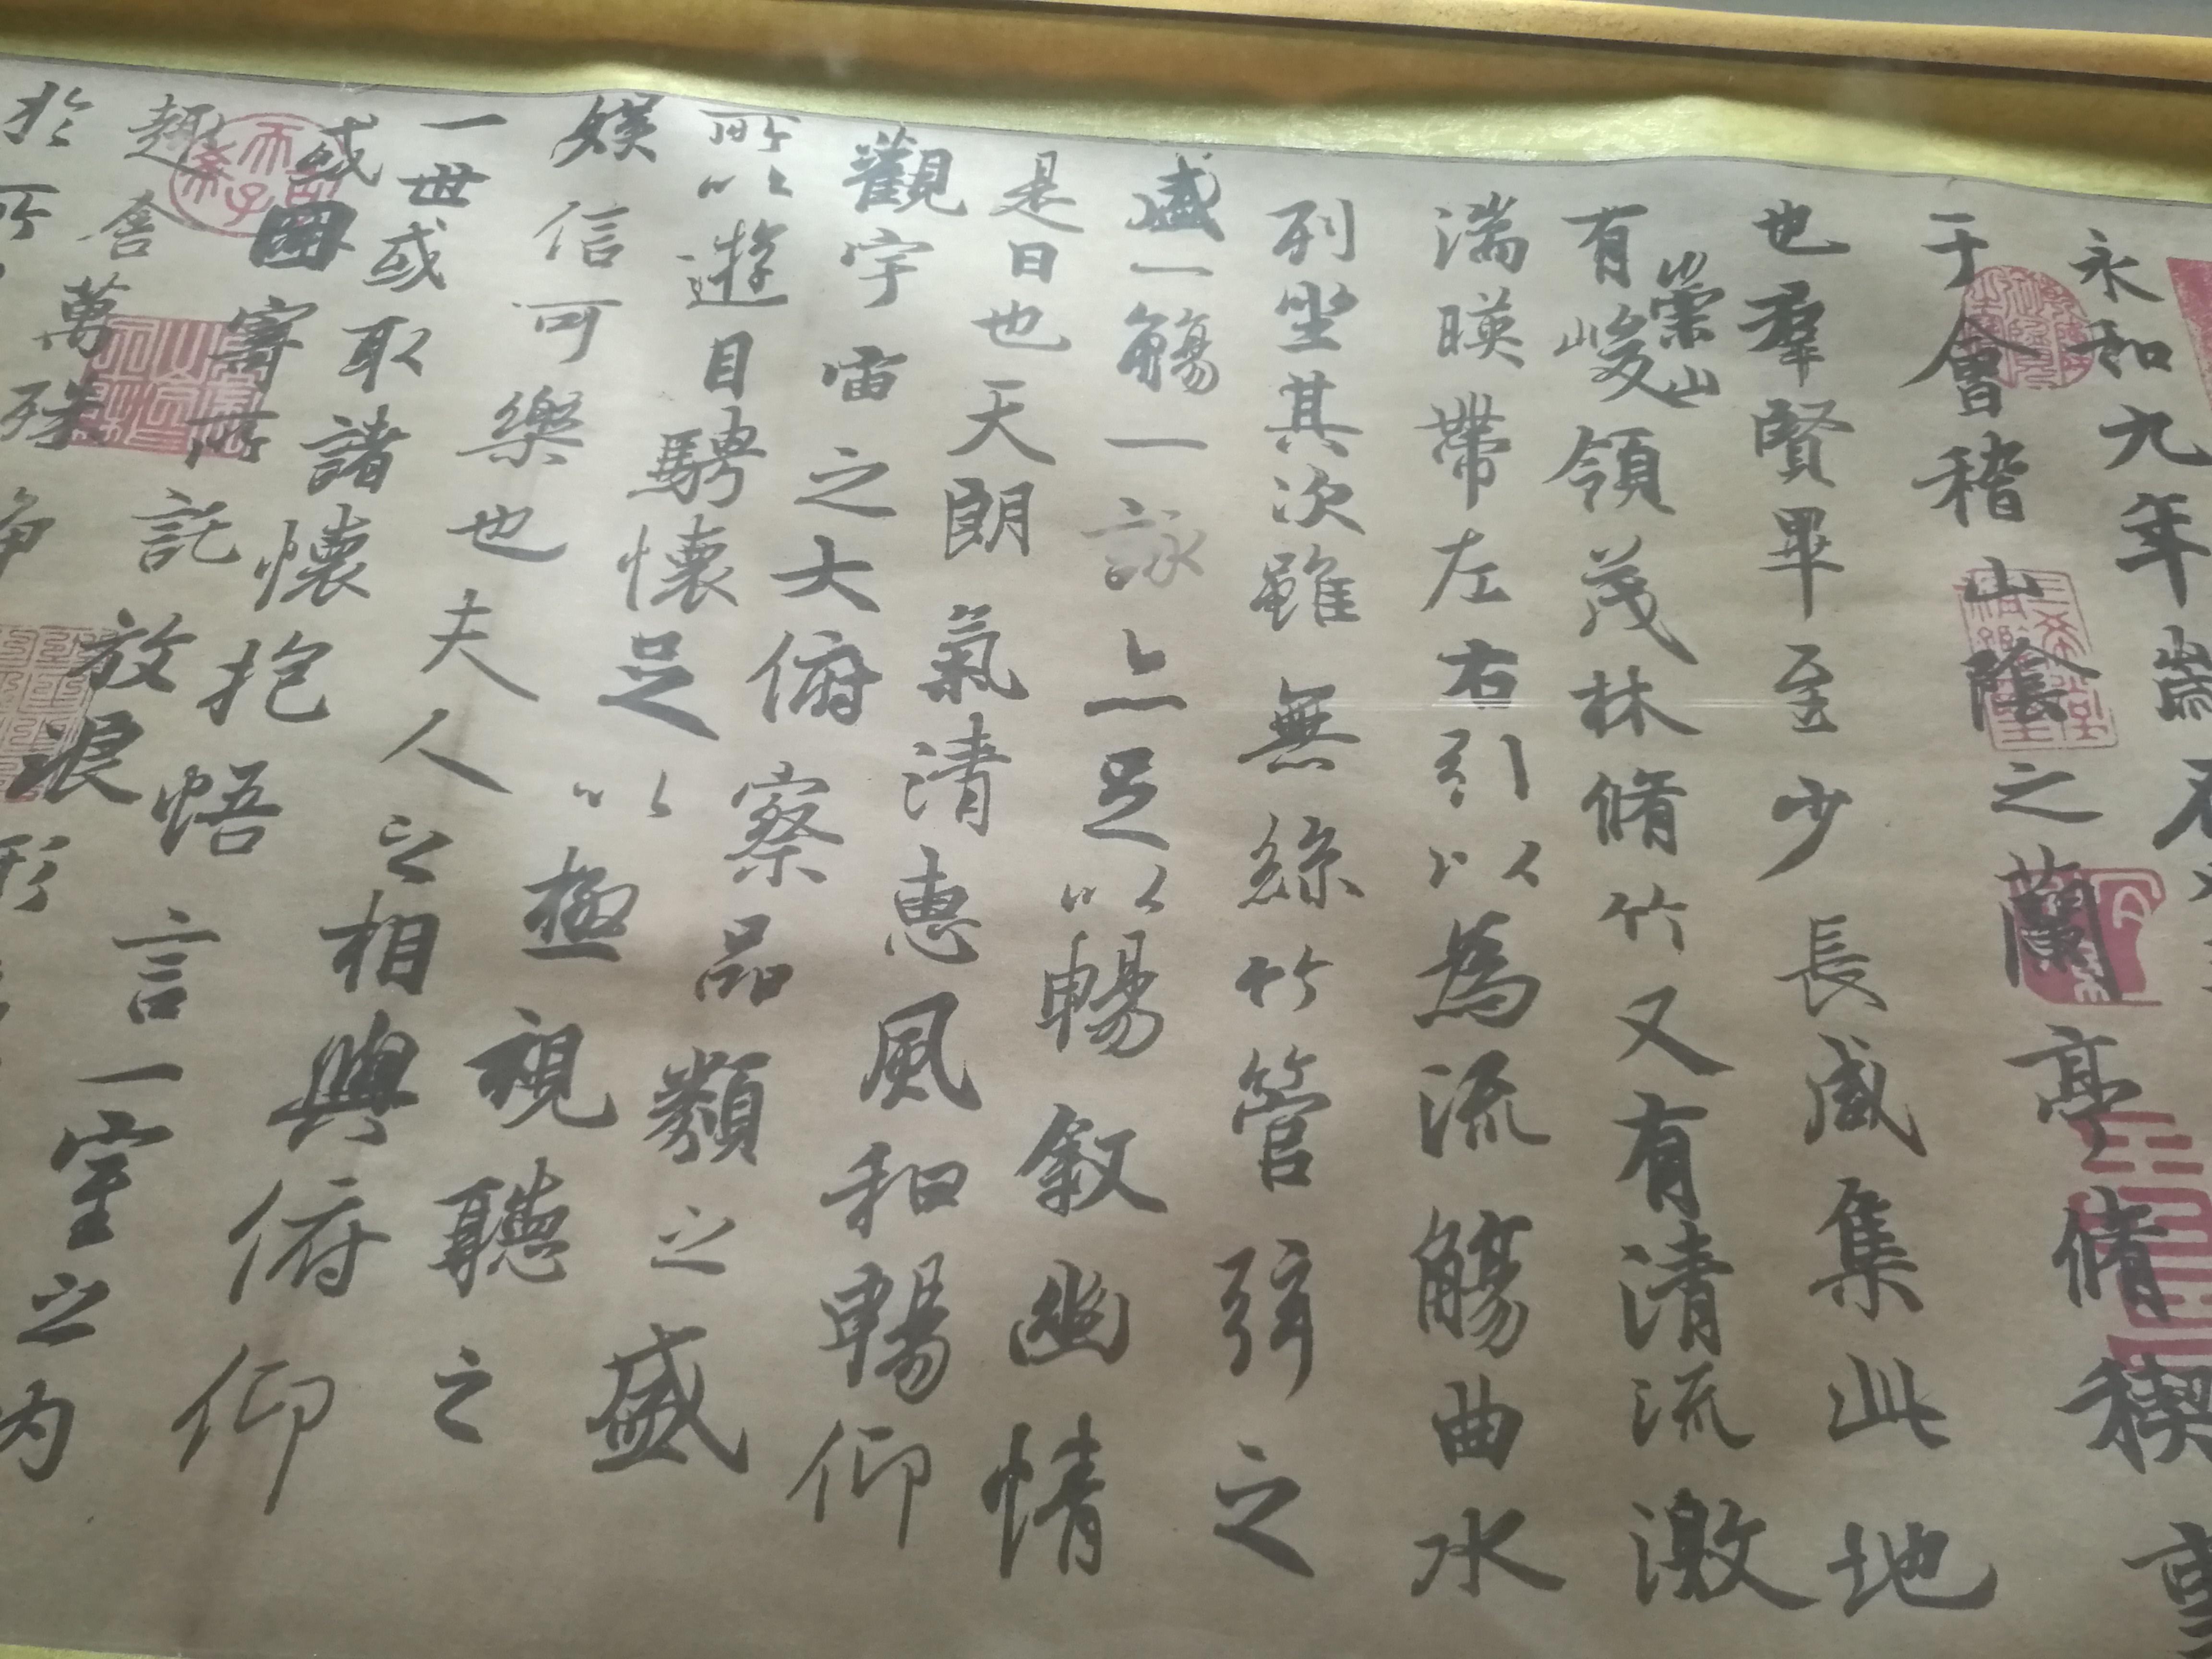 永和九年歲在
于會稽山陰之蘭亭脩禊事
也羣賢畢至少長咸集此地
有崇山峻領茂林脩竹又有清流激
湍暎帶左右引以為流觴曲水
列坐其次雖無絲竹管弦之
盛一觴一詠亦足以暢敘幽情
是日也天朗氣清惠風和暢仰
觀宇宙之大俯察品類之盛
所以遊目騁懷足以極視聽之
娛信可樂也夫人之相與俯仰
一世或取諸懷抱悟言一室之內
或因寄所託放浪形
趣舍萬殊靜
於所